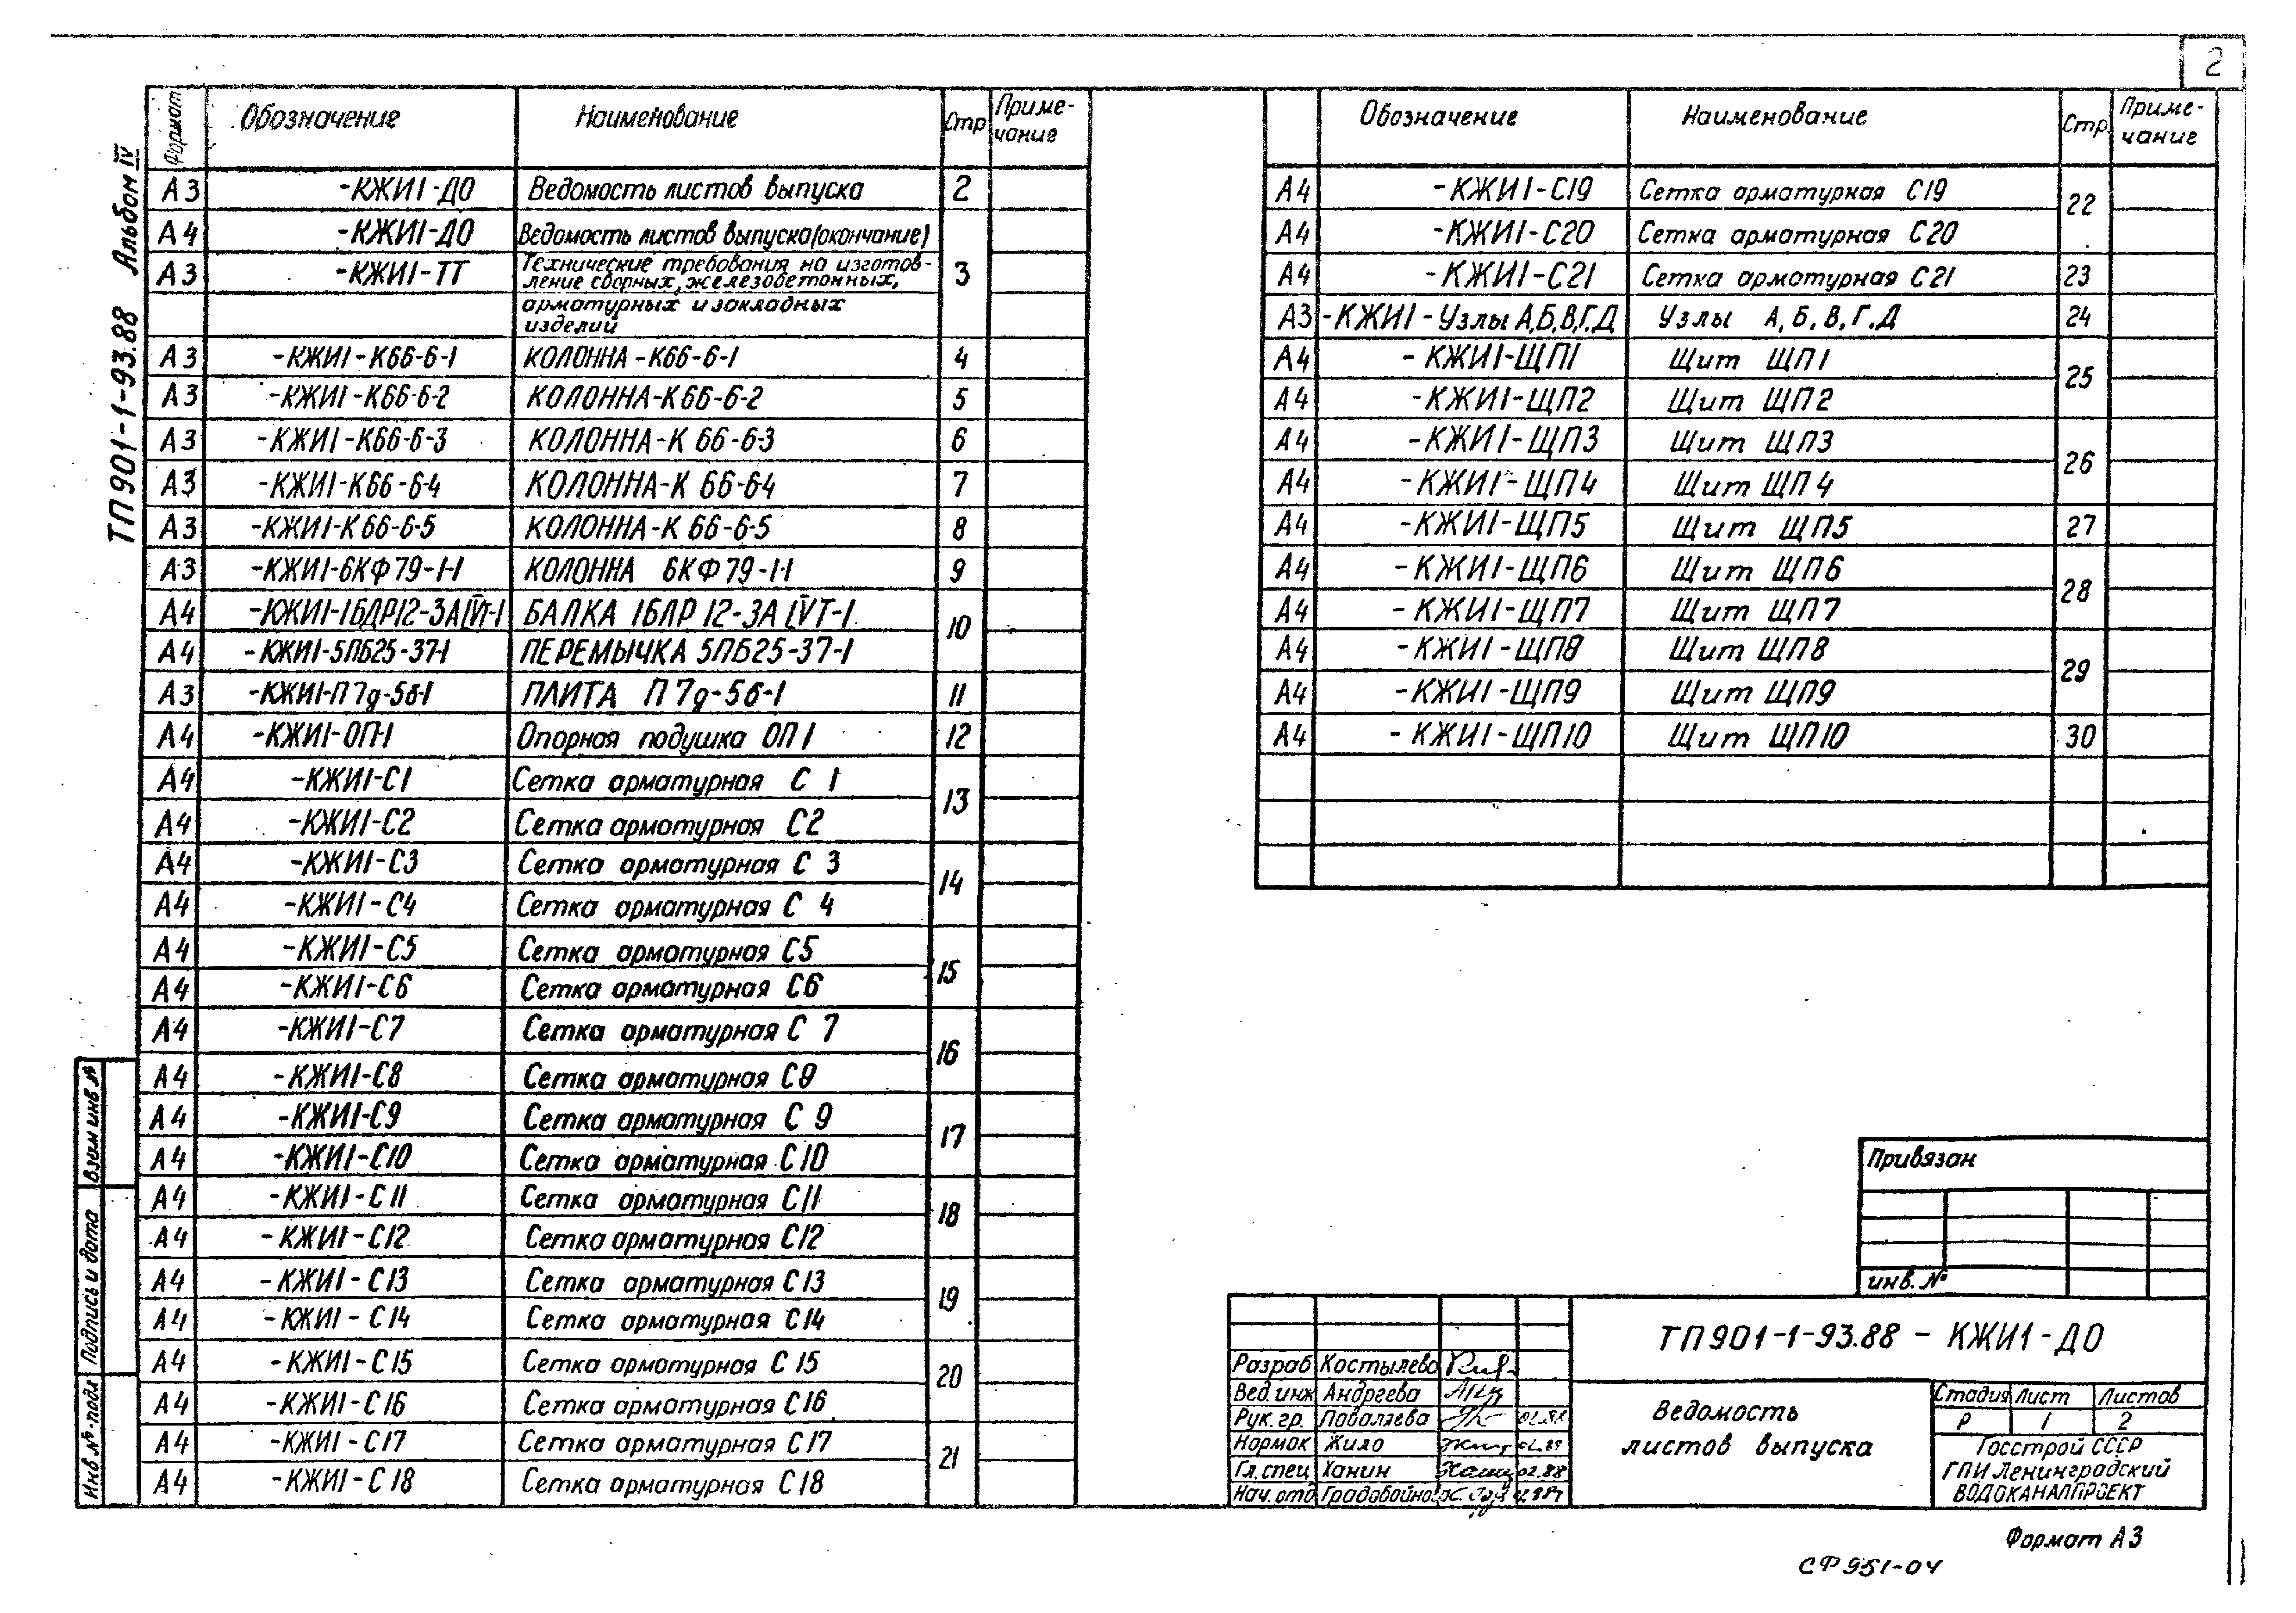 2
ТП901-1-93.88 Альбом IV
Формат Обозначение Наименование Стр Приме-чание
А3 -КЖИ1-ДО Ведомость листов выпуска 2
А4 -КЖИ1-ДО Ведомость листов выпуска (окончание)
А3 -КЖИ1-ТТ Технические требования на изготов-
ление сборных, железобетонных, 3
арматурных и закладных
изделий
А3 -КЖИ1-К66-6-1 КОЛОННА-К66-6-1 4
А3 -КЖИ1-К66-6-2 КОЛОННА-К66-6-2 5
А3 -КЖИ1-К66-6-3 КОЛОННА-К 66-6-3 6
А3 -КЖИ1-К66-6-4 КОЛОННА-К 66-6-4 7
А3 -КЖИ1-К66-6-5 КОЛОННА-К 66-6-5 8
А3 -КЖИ1-6КФ79-1-1 КОЛОННА 6КФ79-1-1 9
А4 -КЖИ1-1БДР12-3АIVт-1 БАЛКА 1БДР 12-3АIVТ-1 10
А4 -КЖИ1-5ПБ25-37-1 ПЕРЕМЫЧКА 5ПБ25-37-1
А3 -КЖИ1-П7д-5б-1 ПЛИТА П7д-5б-1 11
А4 -КЖИ1-ОП-1 Опорная подушка ОП1 12
А4 -КЖИ1-С1 Сетка арматурная С 1 13
А4 -КЖИ1-С2 Сетка арматурная С2
А4 -КЖИ1-С3 Сетка арматурная С 3 14
А4 -КЖИ1-С4 Сетка арматурная С 4
А4 -КЖИ1-С5 Сетка арматурная С5 15
А4 -КЖИ1-С6 Сетка арматурная С6
А4 -КЖИ1-С7 Сетка арматурная С 7 16
А4 -КЖИ1-С8 Сетка арматурная С8
А4 -КЖИ1-С9 Сетка арматурная С 9 17
А4 -КЖИ1-С10 Сетка арматурная С10
А4 -КЖИ1-С11 Сетка арматурная С11 18
А4 -КЖИ1-С12 Сетка арматурная С12
А4 -КЖИ1-С13 Сетка арматурная С13 19
А4 -КЖИ1-С14 Сетка арматурная С14
А4 -КЖИ1-С15 Сетка арматурная С15 20
А4 -КЖИ1-С16 Сетка арматурная С16
А4 -КЖИ1-С17 Сетка арматурная С17 21
А4 -КЖИ1-С18 Сетка арматурная С18
Взам инв №
Подпись и дата
Инв №-подл
Обозначение Наименование Стр. Приме-чание
А4 -КЖИ1-С19 Сетка арматурная С19 22
А4 -КЖИ1-С20 Сетка арматурная С20
А4 -КЖИ1-С21 Сетка арматурная С21 23
А3 -КЖИ1-Узлы А,Б,В,Г,Д Узлы А,Б,В,Г,Д 24
А4 -КЖИ1-ЩП1 Щит ЩП1 25
А4 -КЖИ1-ЩП2 Щит ЩП2
А4 -КЖИ1-ЩП3 Щит ЩП3 26
А4 -КЖИ1-ЩП4 Щит ЩП4
А4 -КЖИ1-ЩП5 Щит ЩП5 27
А4 -КЖИ1-ЩП6 Щит ЩП6 28
А4 -КЖИ1-ЩП7 Щит ЩП7
А4 -КЖИ1-ЩП8 Щит ЩП8 29
А4 -КЖИ1-ЩП9 Щит ЩП9
А4 -КЖИ1-ЩП10 Щит ЩП10 30
Привязан
инв. №
ТП901-1-93.88 - КЖИ1-ДО
Разраб Костылева
Вед инж Андреева
Рук. гр. Поваляева 02.88
Нормок Жило
Гл. спец Ханин 02.88
Нач. отд
Ведомость
листов выпуска
Стадия Лист Листов
Р 1 2
Госстрой СССР
ГПИ Ленинградский
ВОДОКАНАЛПРОЕКТ
Формат А3
СФ951-04